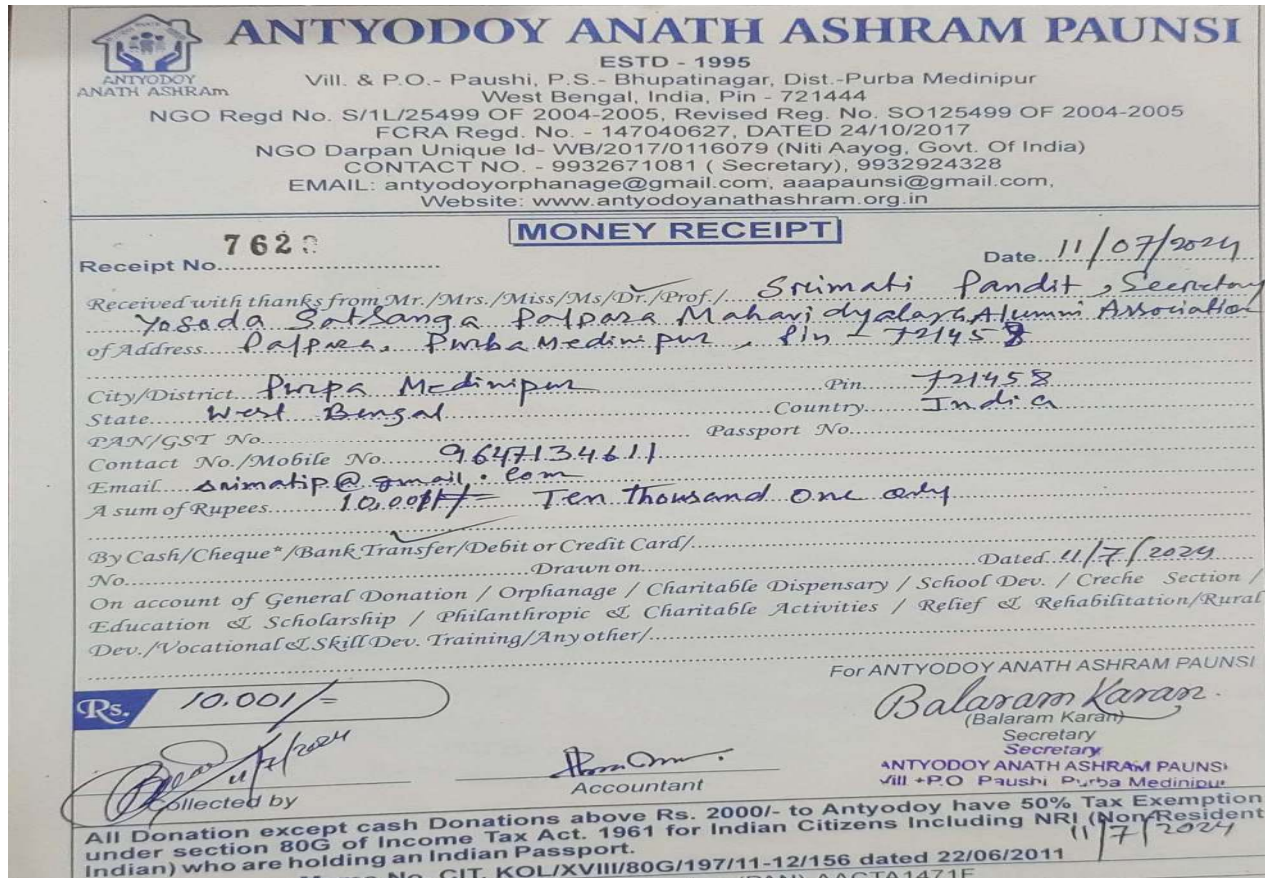 ANTYODOY ANATH ASHRAM PAUNSI
ANTYODOY
ANATH ASHRAm
ESTD - 1995
Vill. & P.O.- Paushi, P.S.- Bhupatinagar, Dist.-Purba Medinipur
West Bengal, India, Pin - 721444
NGO Regd No. S/1L/25499 OF 2004-2005, Revised Reg. No. SO125499 OF 2004-2005
FCRA Regd. No. - 147040627, DATED 24/10/2017
NGO Darpan Unique Id- WB/2017/0116079 (Niti Aayog, Govt. Of India)
CONTACT NO. - 9932671081 ( Secretary), 9932924328
EMAIL: antyodoyorphanage@gmail.com, aaapaunsi@gmail.com,
Website: www.antyodoyanathashram.org.in
MONEY RECEIPT
Receipt No. 762
Date 11/07/2024
Received with thanks from Mr./Mrs./Miss/Ms/Dr./Prof./ Srimati Pandit, Secretary
Yosoda Satsanga Palpara Mahavidyalaya Alumni Association
of Address Palpara, Purba Medinipur, Pin - 721458
City/District Purpa Medinipur Pin 721458
State West Bengal Country India
PAN/GST No. Passport No.
Contact No./Mobile No. 9647134611
Email srimatip@gmail.com
A sum of Rupees 10,001/= Ten thousand one only
By Cash/Cheque*/Bank Transfer/Debit or Credit Card/
No. Drawn on Dated 11/7/2024
On account of General Donation / Orphanage / Charitable Dispensary / School Dev. / Creche Section /
Education & Scholarship / Philanthropic & Charitable Activities / Relief & Rehabilitation/Rural
Dev./Vocational & Skill Dev. Training/Any other/
For ANTYODOY ANATH ASHRAM PAUNSI
Rs. 10.001/=
Balaram Karan
(Balaram Karan)
Secretary
Secretary
ANTYODOY ANATH ASHRAM PAUNSI
Vill +P.O Paushi Purba Medinipur
11/7/2024
Collected by
Accountant
All Donation except cash Donations above Rs. 2000/- to Antyodoy have 50% Tax Exemption
under section 80G of Income Tax Act. 1961 for Indian Citizens Including NRI (Non Resident
Indian) who are holding an Indian Passport.
11/7/2024
No. CIT. KOL/XVIII/80G/197/11-12/156 dated 22/06/2011